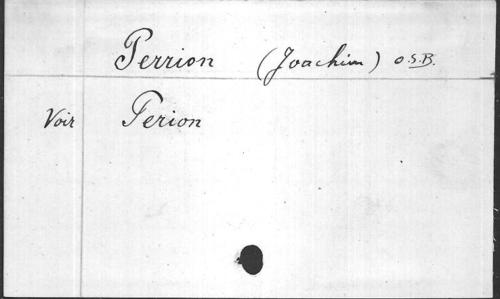 Perrion (Joachim) O.S.B.
Voir Perion